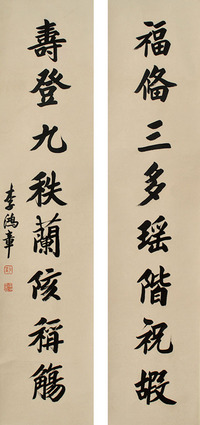 福備三多瑤階祝嘏
壽登九秩蘭陔稱觴
李鴻章